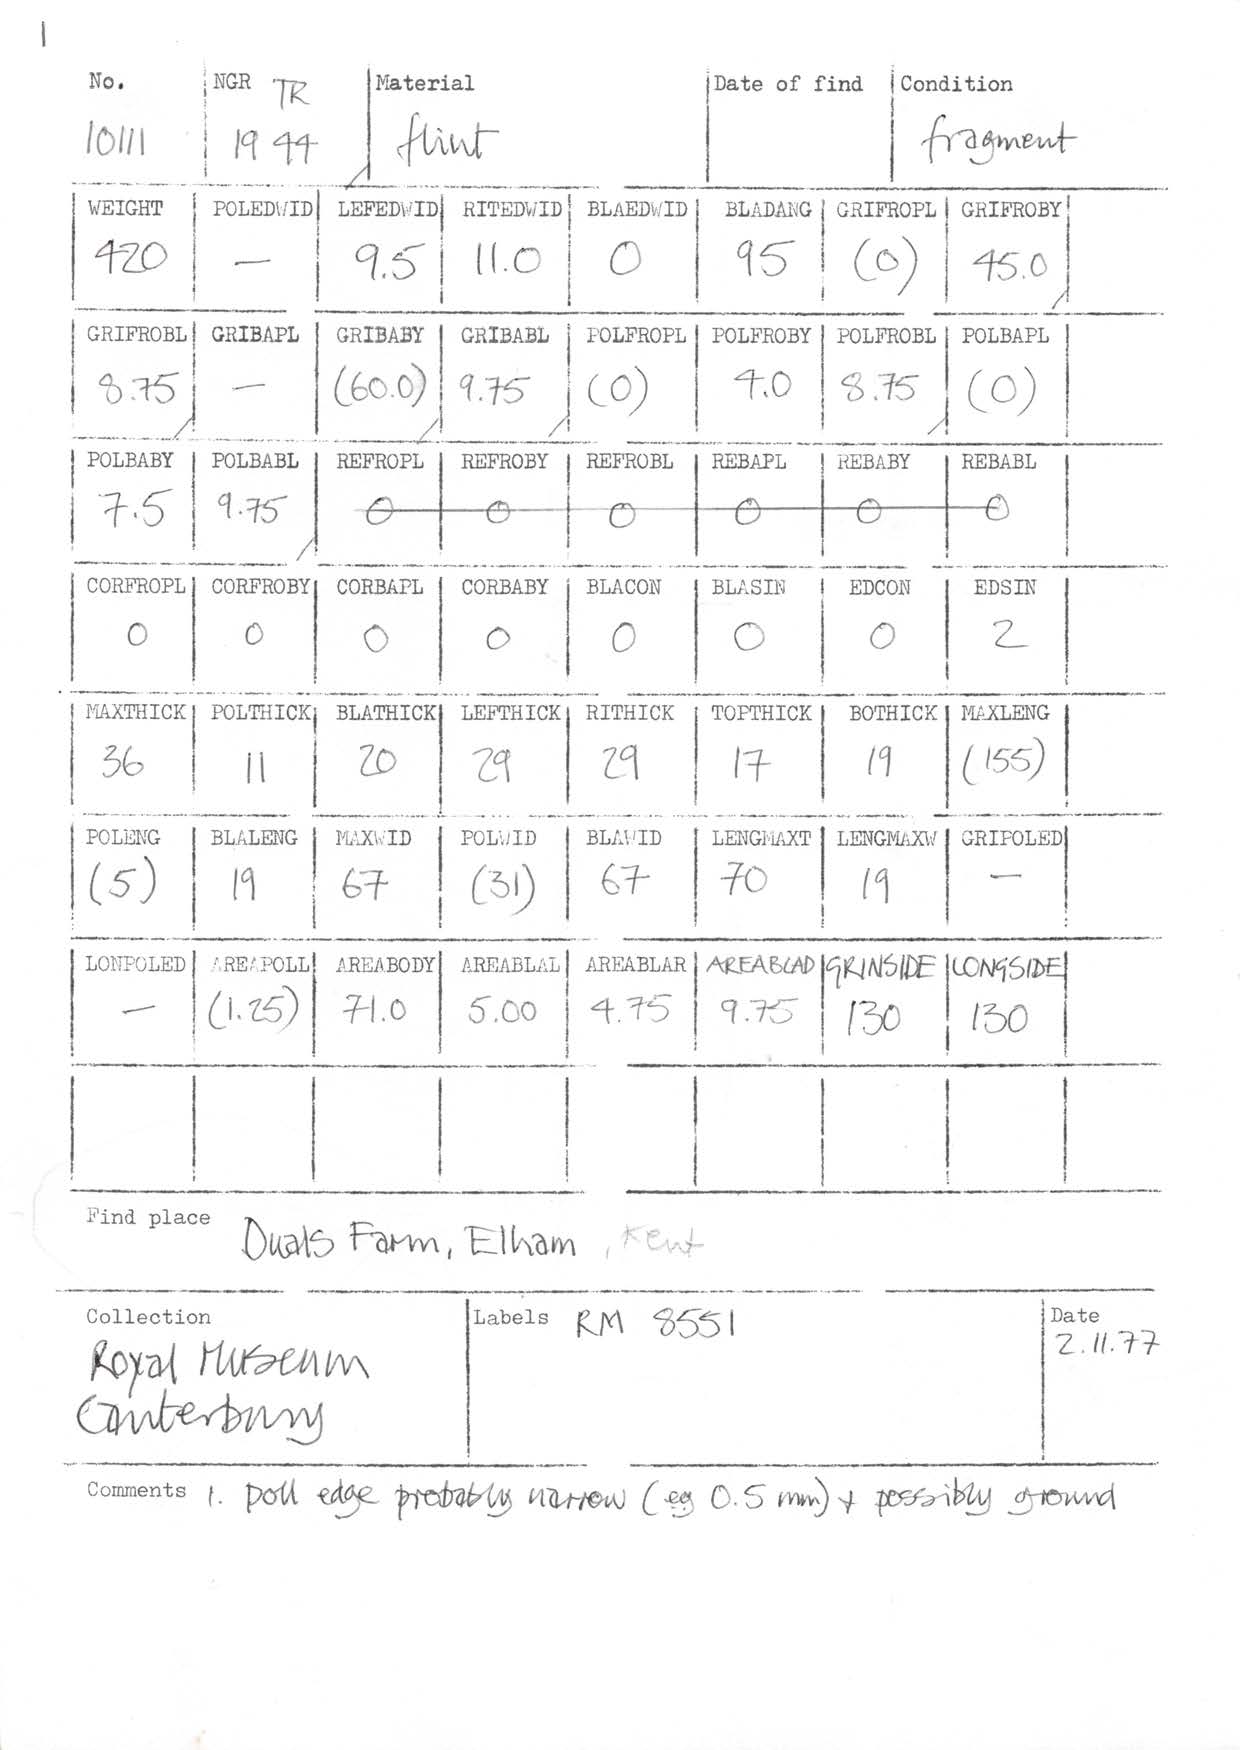 1
No. NGR TR Material Date of find Condition
10111 19 44 flint fragment
WEIGHT POLEDWID LEFEDWID RITEDWID BLAEDWID BLADANG GRIFROPL GRIFROBY
420 — 9.5 11.0 0 95 (0) 45.0
GRIFROBL GRIBAPL GRIBABY GRIBABL POLFROPL POLFROBY POLFROBL POLBAPL
8.75 — (60.0) 9.75 (0) 4.0 8.75 (0)
POLBABY POLBABL REFROPL REFROBY REFROBL REBAPL REBABY REBABL
7.5 9.75 0 0 0 0 0 0
CORFROPL CORFROBY CORBAPL CORBABY BLACON BLASIN EDCON EDSIN
0 0 0 0 0 0 0 2
MAXTHICK POLTHICK BLATHICK LEFTHICK RITHICK TOPTHICK BOTHICK MAXLENG
36 11 20 29 29 17 19 (155)
POLENG BLALENG MAXWID POLWID BLAWID LENGMAXT LENGMAXW GRIPOLED
(5) 19 67 (31) 67 70 19 —
LONPOLED AREAPOLL AREABODY AREABLAL AREABLAR AREABLAD GRINSIDE LONGSIDE
— (1.25) 71.0 5.00 4.75 9.75 130 130
Find place Duals Farm, Elham, Kent
Collection Labels RM 8551 Date
Royal Museum 2.11.77
Canterbury
Comments 1. poll edge probably narrow (eg 0.5 mm) + possibly ground